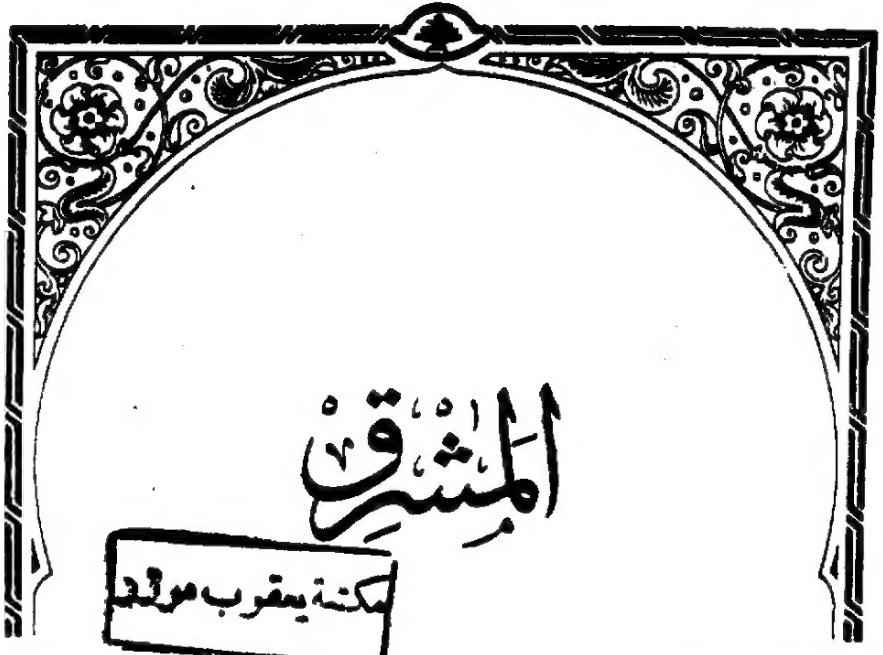 المَشْرِق
مكتبة يعقوب